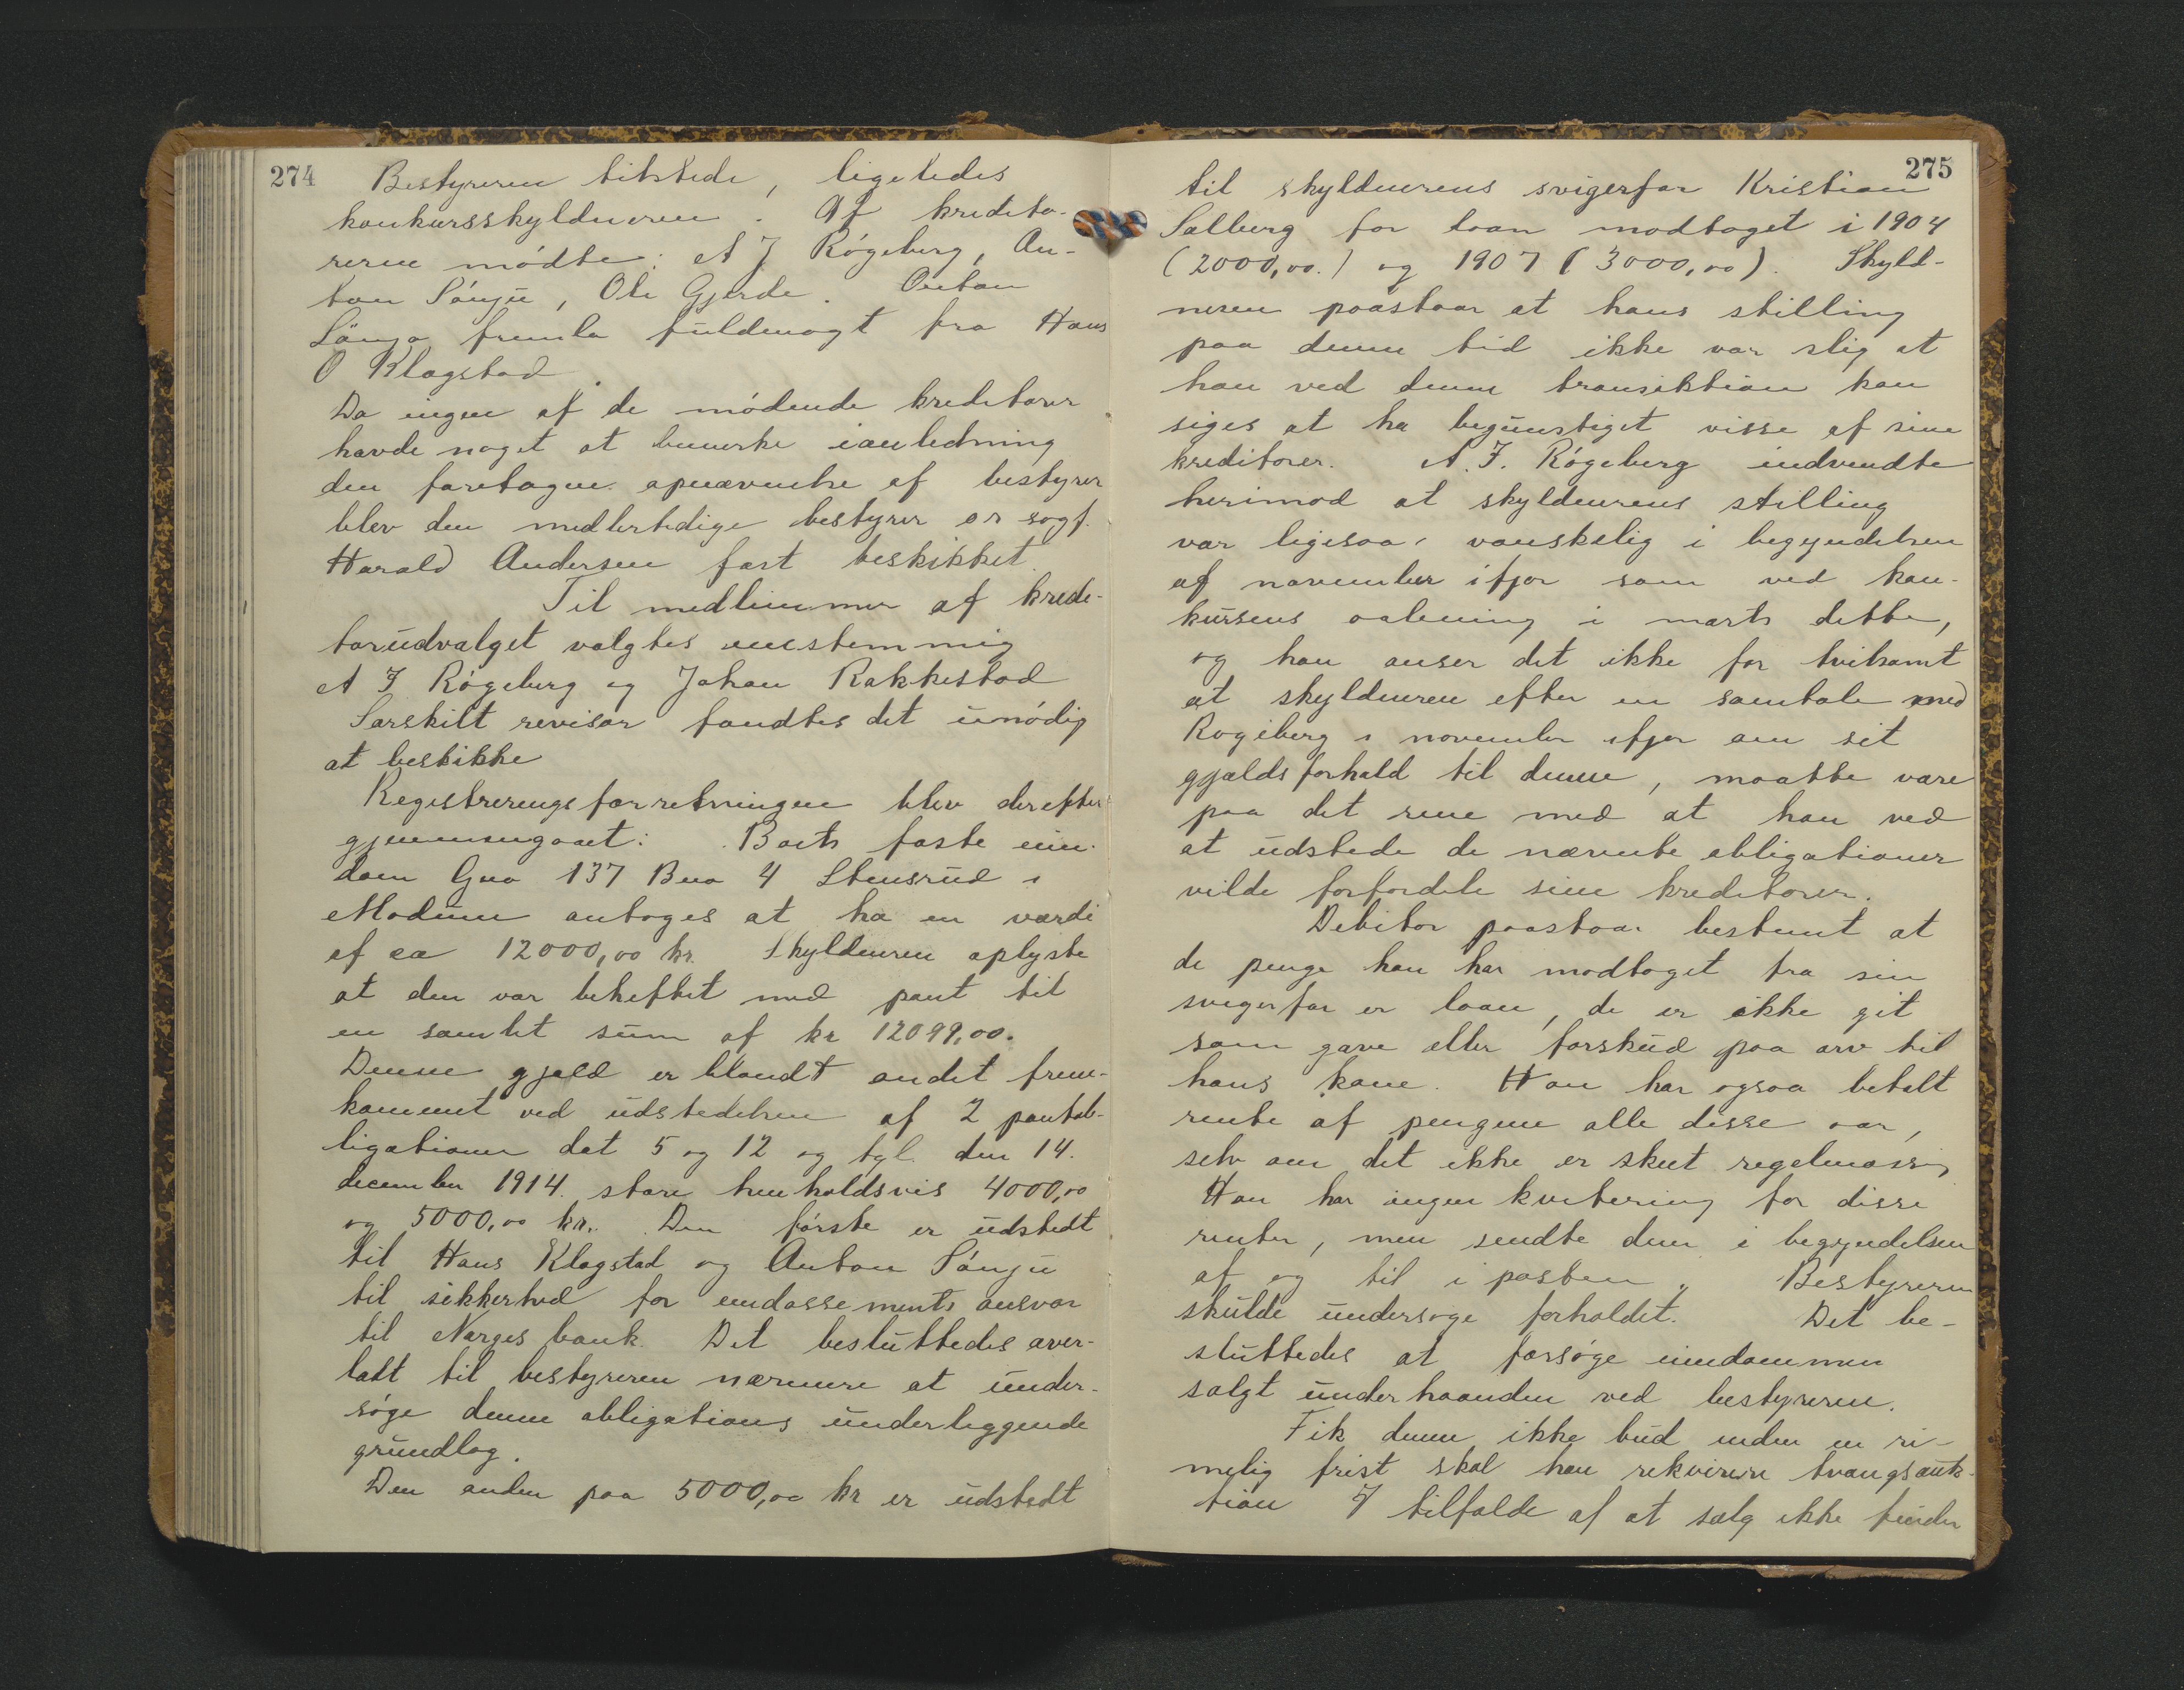 274
Bestyreren tilstede, ligeledes
konkursskyldneren. Af kredito-
rerne mødte: A J Røgeberg, An-
ton Sønju, Ole Gjerde. Anton
Sønju fremla fuldmagt fra Hans
O Klagstad.
Da ingen af de mødende kreditorer
havde noget at bemerke ianledning
den foretagne opnævnelse af bestyrer
blev den midlertidige bestyrer o r sagf.
Harald Andersen fast beskikket.
Til medlemmer af kredi-
torudvalget valgtes enstemmig
A J Røgeberg og Johan Rakkestad
Særskilt revisor fandtes det unødig
at beskikke
Registreringsforretningen blev derefter
gjennemgaaet: Boets faste eien-
dom Gno 137 Bno 4 Stensrud i
Modum antoges at ha en værdi
af ca 12000,00 kr. Skyldneren oplyste
at den var beheftet med pant til
en samlet sum af kr 12099,00.
Denne gjæld er blandt andet frem-
kommet ved udstedelsen af 2 pantob-
ligationer dat 5 og 12 og tgl. den 14.
december 1914. store henholdsvis 4000,00
og 5000,00 kr. Den første er udstedt
til Hans Klagstad og Anton Sønju
til sikkerhed for endossements ansvar
til Norges bank. Det besluttedes over-
latt til bestyreren nærmere at under-
søge denne obligations underliggende
grundlag.
Den anden paa 5000,00 kr er udstedt
275
til skyldnerens svigerfar Kristian
Solberg for laan modtaget i 1904
(2000,00.) og 1907 (3000,00). Skyld-
neren paastaar at hans stilling
paa denne tid ikke var slig at
han ved denne transiktion kan
siges at ha begunstiget visse af sine
kreditorer. A. J. Røgeberg indvendte
herimod at skyldnerens stilling
var ligesaa vanskelig i begyndelsen
af november ifjor som ved kon-
kursens aabning i marts dette,
og han anser det ikke for tvilsomt
at skyldneren efter en samtale med
Rogeberg i november ifjor om sit
gjældsforhold til denne, maatte være
paa det rene med at han ved
at udstede de nævnte obligationer
vilde forfordele sine kreditorer.
Debitor paastaar bestemt at
de penge han har modtaget fra sin
svigerfar er laan, de er ikke git
som gave eller forskud paa arv til
hans kone. Han har ogsaa betalt
rente af pengene alle disse aar,
selv om det ikke er skeet regelmæssig
Han har ingen kvitering for disse
renter, men sendte dem i begyndelsen
af og til i posten. Bestyreren
skulde undersøge forholdet. Det be-
sluttedes at forsøge eiendommen
solgt underhaanden ved bestyreren.
Fik denne ikke bud inden en ri-
melig frist skal han rekvirere tvangsauk-
tion I tilfælde af at salg ikke finder